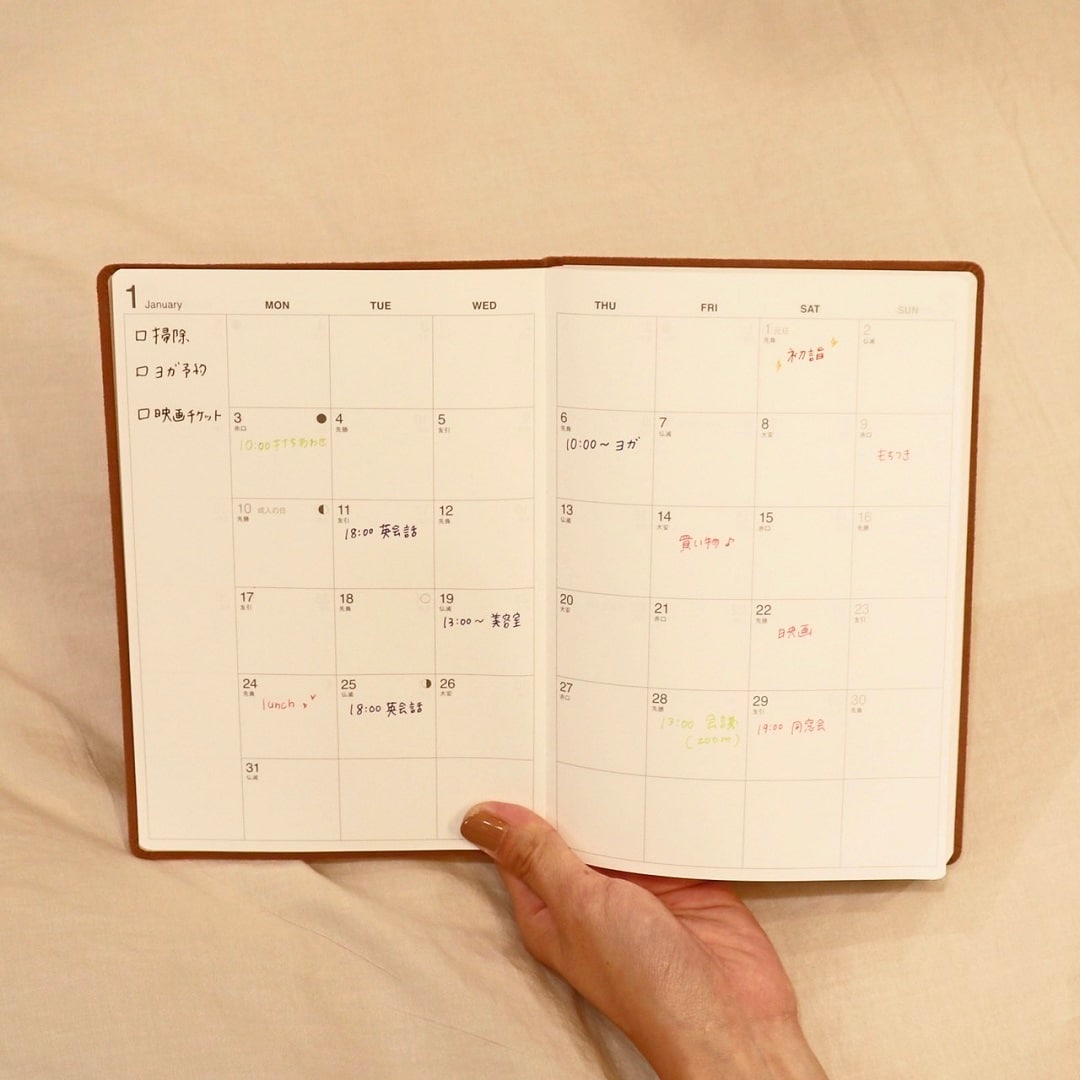 1 January
MON TUE WED THU FRI SAT SUN
□掃除
□ヨガ予約
□映画チケット
1 元日
先負
初詣
2
仏滅
3
赤口
10:00 打ちあわせ
4
先勝
5
友引
6
先負
10:00〜ヨガ
7
仏滅
8
大安
9
赤口
もちつき
10 成人の日
先勝
11
友引
18:00 英会話
12
先負
13
仏滅
14
大安
買い物♪
15
赤口
16
先勝
17
友引
18
先負
19
仏滅
13:00〜 美容室
20
大安
21
赤口
22
先勝
映画
23
友引
24
先負
lunch
25
仏滅
18:00 英会話
26
大安
27
赤口
28
先勝
13:00 会議
(zoom)
29
友引
19:00 同窓会
30
先負
31
仏滅